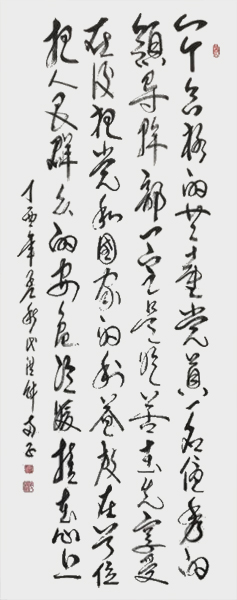 一个合格的共产党员一名优秀的
领导干部一定是吃苦在先享受
在后把党和国家的利益放在首位
把人民群众的安危冷暖挂在心上
丁酉年